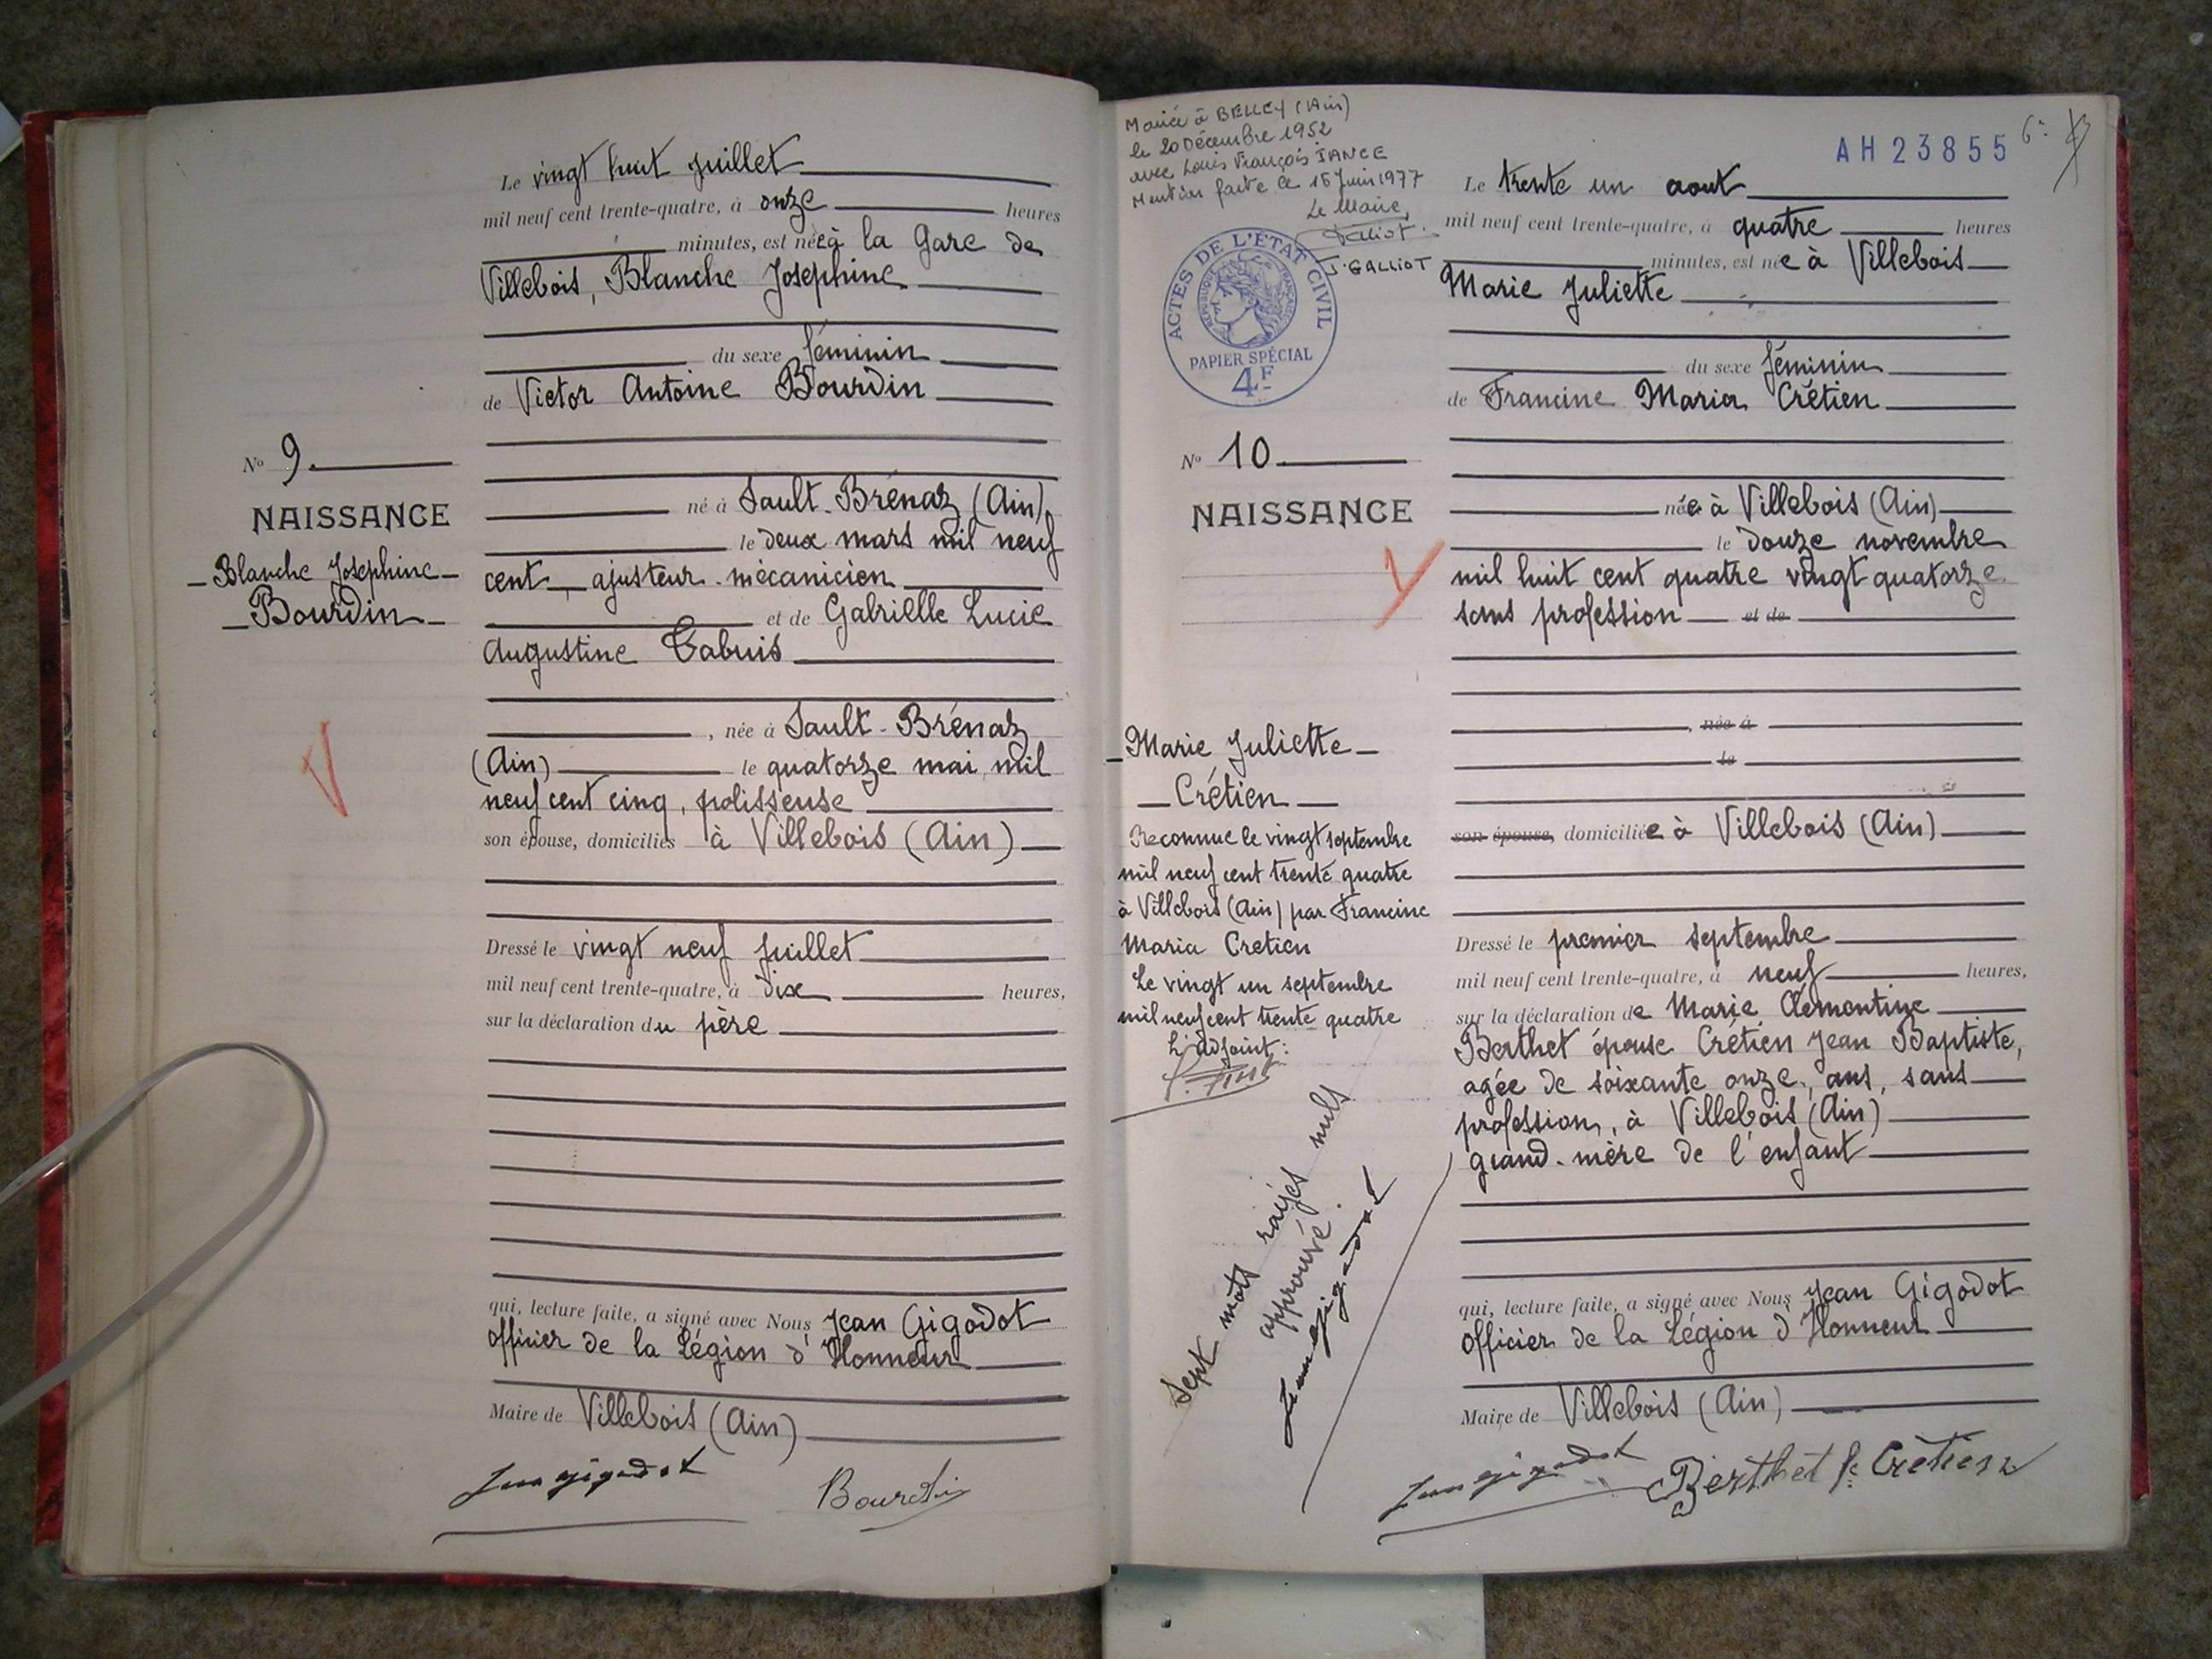 Le vingt huit juillet
mil neuf cent trente-quatre, à onze heures
minutes, est née à la Gare de
Villebois, Blanche Josephine
du sexe féminin
de Victor Antoine Bourdin
né à Sault-Brénaz (Ain),
le deux mars mil neuf
cent, ajusteur-mécanicien
et de Gabrielle Lucie
Augustine Tabuis
, née à Sault-Brénaz
(Ain) le quatorze mai mil
neuf cent cinq, polisseuse
son épouse, domiciliés à Villebois (Ain)
Dressé le vingt neuf juillet
mil neuf cent trente-quatre, à dix heures,
sur la déclaration du père
qui, lecture faite, a signé avec Nous Jean Gigodot
officier de la Légion d'Honneur
Maire de Villebois (Ain)
Jean Gigodot Bourdin
No 9.
NAISSANCE
Blanche Josephine
Bourdin
Mariée à BELLEY (Ain)
le 20 Décembre 1952
avec Louis François JANCE
Mention faite le 15 Juin 1977
Le Maire,
J. GALLIOT
ACTES DE L'ETAT CIVIL
REPUBLIQUE FRANÇAISE
PAPIER SPÉCIAL
4F
No 10
NAISSANCE
Marie Juliette
Crétien
Reconnue le vingt septembre
mil neuf cent trente quatre
à Villebois (Ain) par Francine
Maria Cretien
Le vingt un septembre
mil neuf cent trente quatre
L'adjoint:
Sept mots rayés nuls
approuvé.
Jean Gigodot
AH 23855
Le trente un aout
mil neuf cent trente-quatre, à quatre heures
minutes, est née à Villebois
Marie Juliette
du sexe féminin
de Francine Maria Crétien
née à Villebois (Ain)
le douze novembre
mil huit cent quatre vingt quatorze
sans profession et de
, née à
le
son épouse, domiciliée à Villebois (Ain)
Dressé le premier septembre
mil neuf cent trente-quatre, à neuf heures,
sur la déclaration de Marie Clémentine
Berthet épouse Crétien Jean Baptiste,
agée de soixante onze, ans, sans
profession, à Villebois (Ain)
grand-mère de l'enfant
qui, lecture faite, a signé avec Nous Jean Gigodot
Officier de la Légion d'Honneur
Maire de Villebois (Ain)
Jean Gigodot Berthet fe Crétien